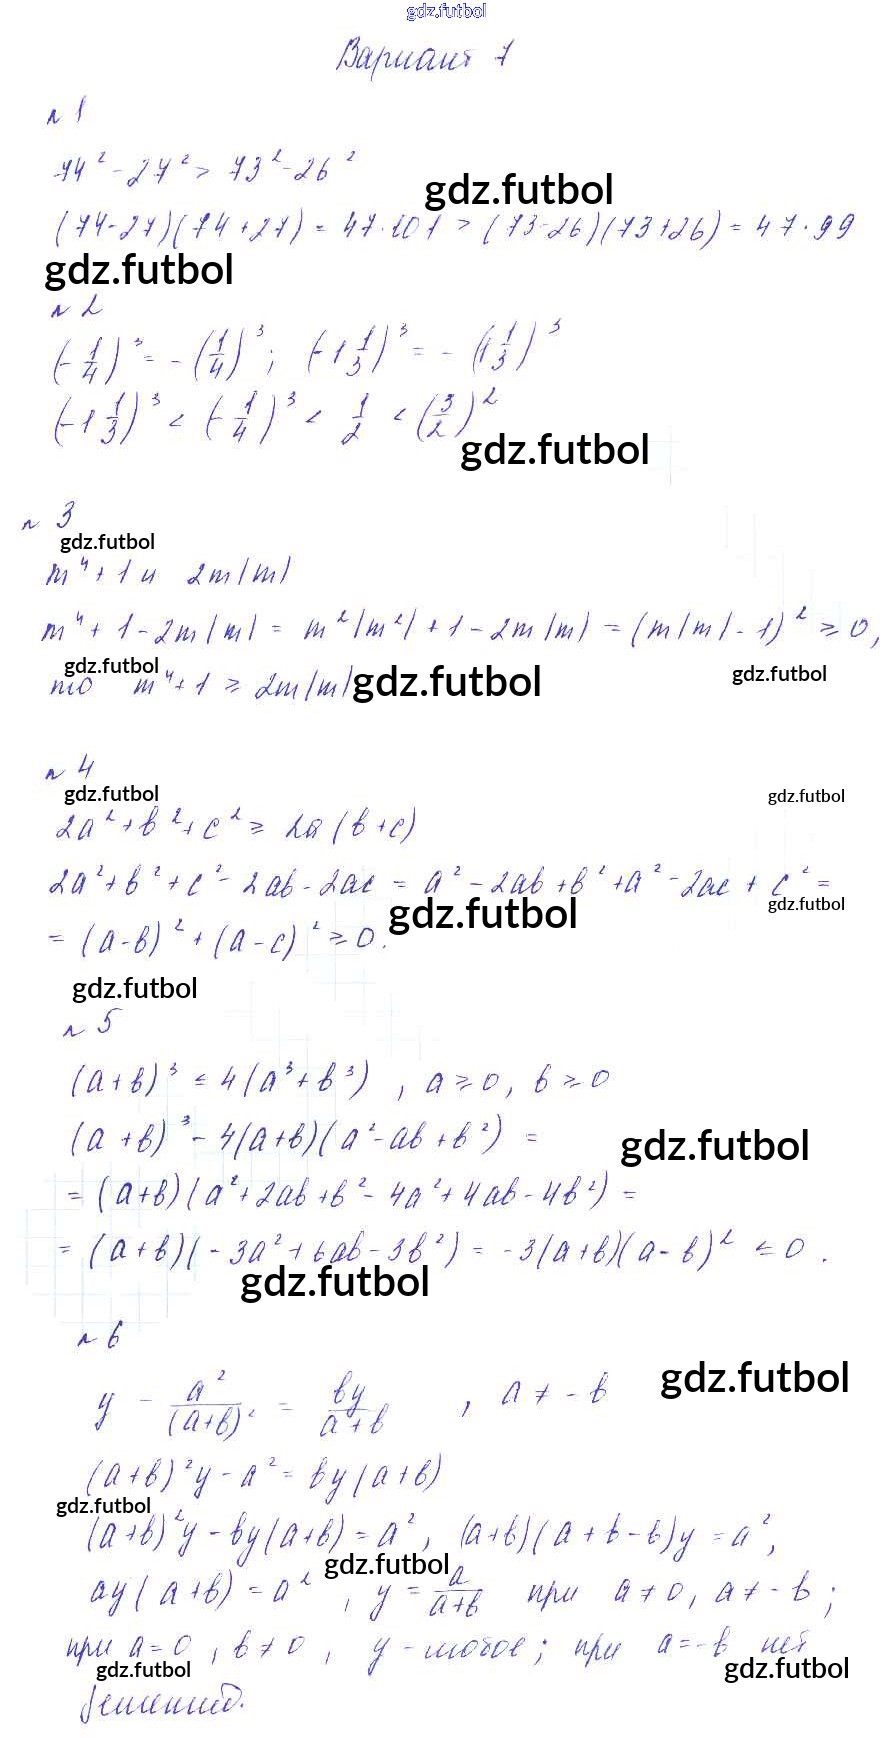 gdz.futbol
Вариант 7
n 1
74² - 27² > 73² - 26²
gdz.futbol
(74-27)(74+27) = 47·101 > (73-26)(73+26) = 47·99
gdz.futbol
n 2
(-1/4)³ = -(1/4)³; (-1 1/3)³ = -(1 1/3)³
(-1 1/3)³ < (-1/4)³ < 1/2 < (3/2)²
gdz.futbol
n 3
gdz.futbol
m⁴ + 1 и 2m|m|
m⁴ + 1 - 2m|m| = m²|m²| + 1 - 2m|m| = (m|m| - 1)² ≥ 0,
gdz.futbol
то m⁴ + 1 ≥ 2m|m|
gdz.futbol
gdz.futbol
n 4
gdz.futbol
gdz.futbol
2a² + b² + c² ≥ 2a(b+c)
2a² + b² + c² - 2ab - 2ac = a² - 2ab + b² + a² - 2ac + c² =
gdz.futbol
gdz.futbol
= (a-b)² + (a-c)² ≥ 0.
gdz.futbol
n 5
(a+b)³ ≤ 4(a³+b³) , a ≥ 0, b ≥ 0
(a+b)³ - 4(a+b)(a²-ab+b²) =
gdz.futbol
= (a+b)(a²+2ab+b²-4a²+4ab-4b²) =
= (a+b)(-3a²+6ab-3b²) = -3(a+b)(a-b)² ≤ 0.
gdz.futbol
n 6
y - a²/(a+b)² = by/(a+b) , a ≠ -b
gdz.futbol
(a+b)²y - a² = by(a+b)
gdz.futbol
(a+b)²y - by(a+b) = a², (a+b)(a+b-b)y = a²,
gdz.futbol
ay(a+b) = a² , y = a/(a+b) при a ≠ 0, a ≠ -b;
при a = 0, b ≠ 0, y - любое; при a = -b нет
gdz.futbol
gdz.futbol
решений.